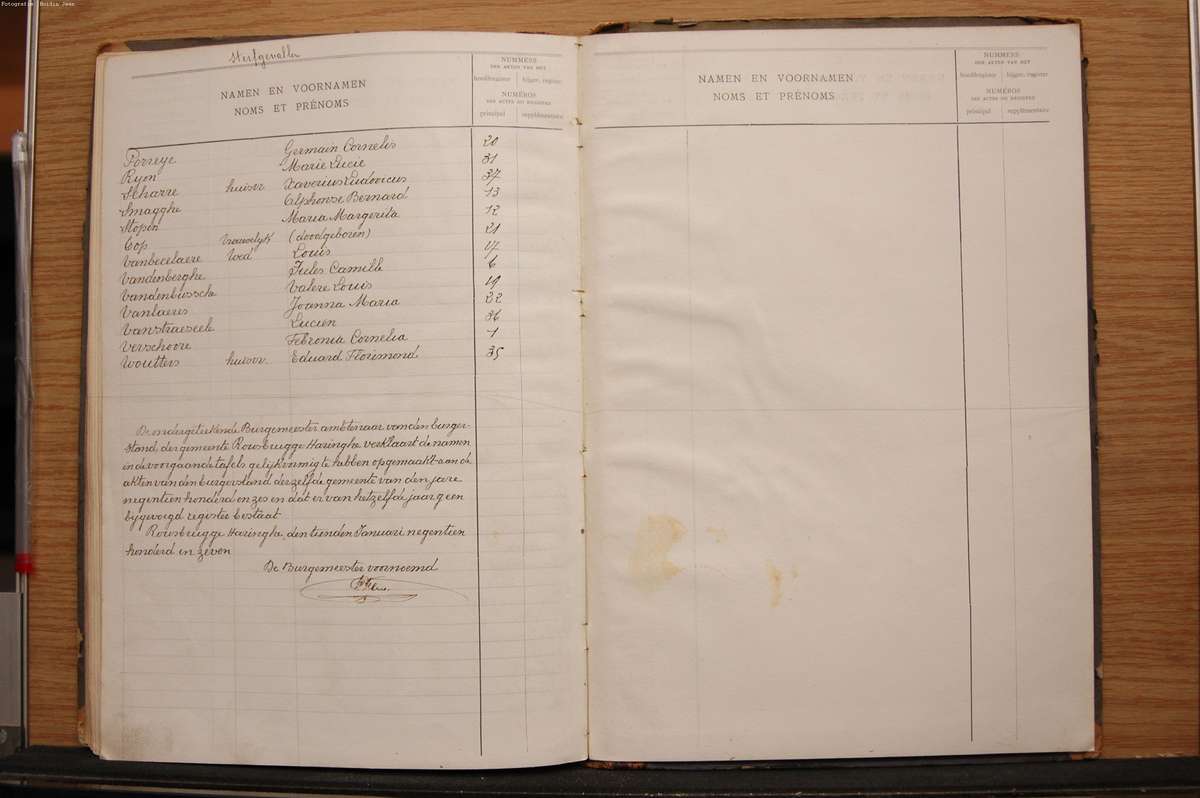 Fotografie: Boidin Jean
Sterfgevallen
NAMEN EN VOORNAMEN
NOMS ET PRÉNOMS
NUMMERS
DER AKTEN VAN HET
hoofdregister bijgev. register
NUMÉROS
DES ACTES DU REGISTRE
principal supplémentaire
Porreye Germain Cornelis 20
Ryon Marie Lucie 31
Scharre huisvr. Xaverius Ludovicus 37
Smagghe Alphonse Bernard 13
Stopin Maria Margerita 12
Top vrouwelijk (doodgeboren) 21
Vanbecelaere Wed Louis 17
Vandenberghe Jules Camille 6
Vandenbussche Valere Louis 19
Vanlaeres Joanna Maria 22
Vanstraeseele Lucien 36
Verschoore Febronia Cornelia 1
Woutters huisvr. Eduard Florimond 35
De ondergeteekende Burgemeester ambtenaar van den burger-
stand, der gemeente Rousbrugge Haringhe verklaart de namen
in de voorgaande tafels gelijkvormig te hebben opgemaakt aan de
akten van den burgerstand derzelfde gemeente van den jare
negentien honderd en zes en dat er van hetzelfde jaar geen
bijgevoegd register bestaat
Rousbrugge Haringhe, den tienden Januari negentien
honderd en zeven
De Burgemeester voornoemd
NAMEN EN VOORNAMEN
NOMS ET PRÉNOMS
NUMMERS
DER AKTEN VAN HET
hoofdregister bijgev. register
NUMÉROS
DES ACTES DU REGISTRE
principal supplémentaire